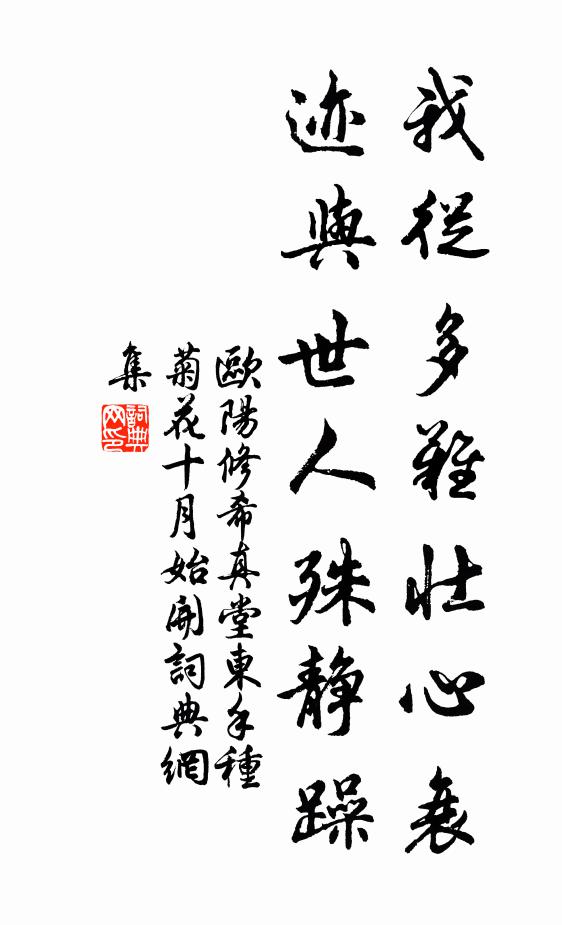 我從多難壯心衰
迹與世人殊静躁
歐陽修希真堂東手種
菊花十月始開詞典網
集
詞典
网印